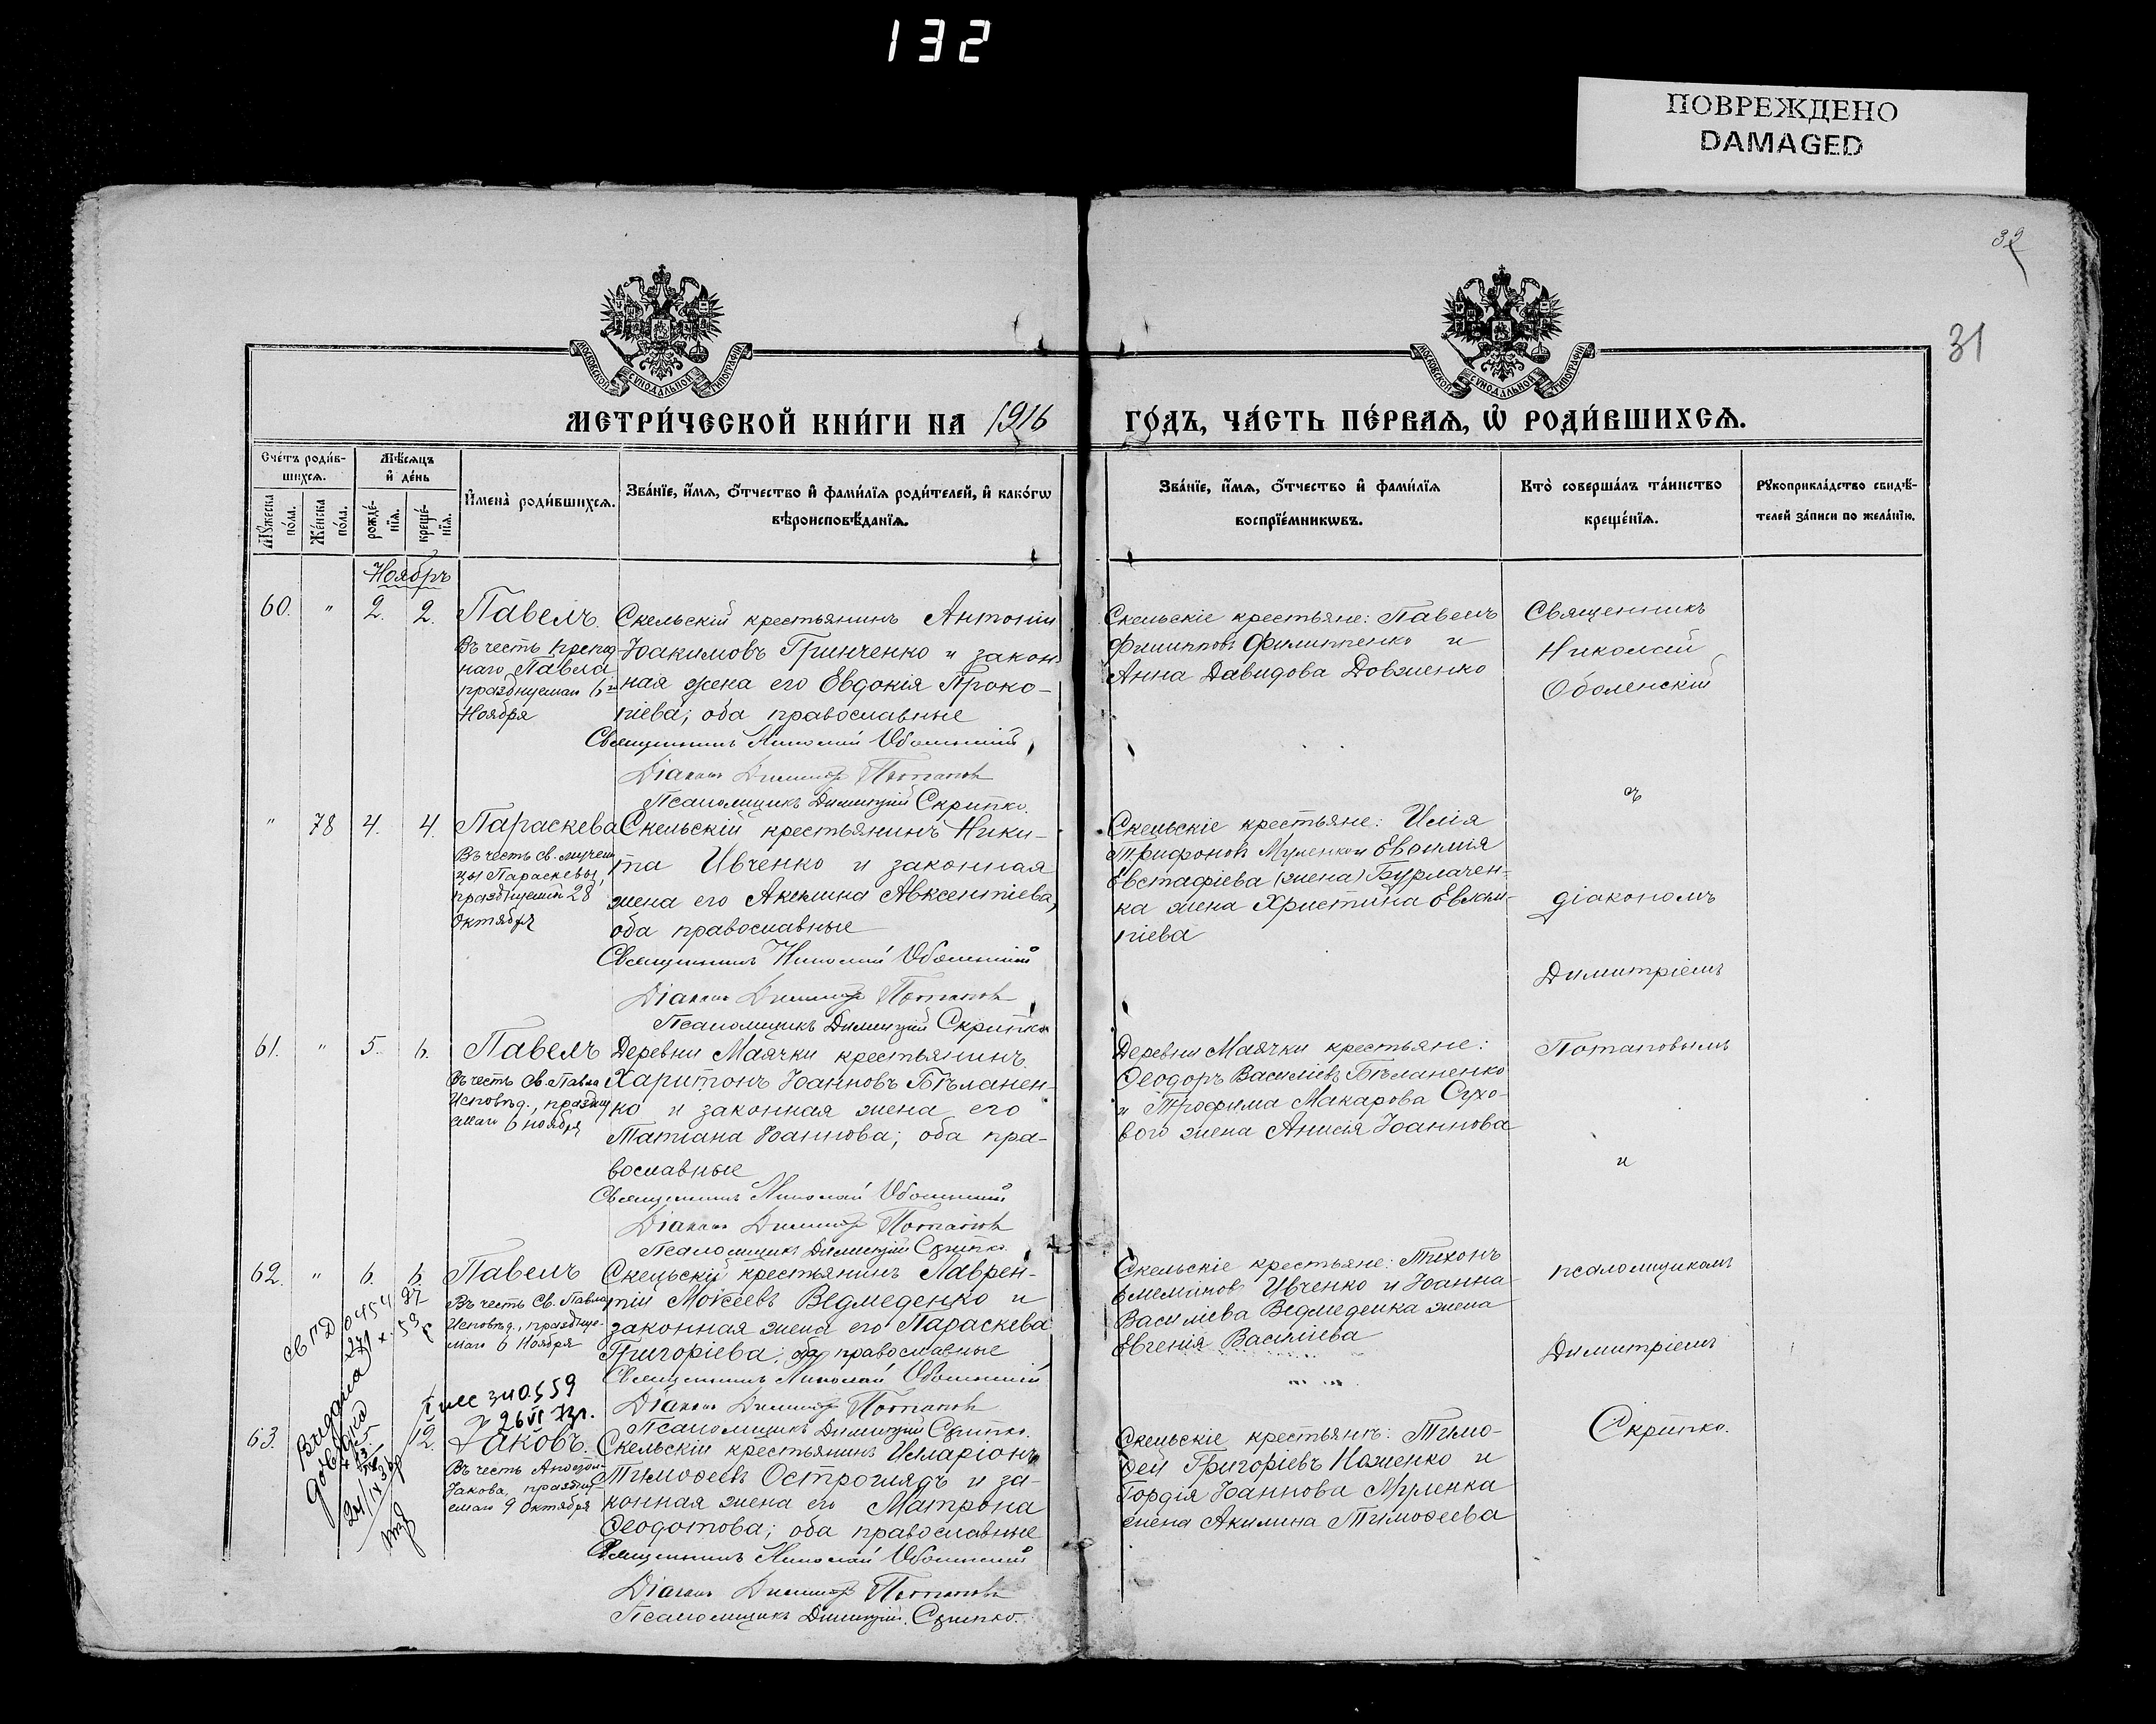 132
ПОВРЕЖДЕНО
DAMAGED
32
31
МОСКОВСКОЙ СѴНОДАЛЬНОЙ ТИПОГРАФІИ
МОСКОВСКОЙ СѴНОДАЛЬНОЙ ТИПОГРАФІИ
МЕТРИ́ЧЕСКОЙ КНИ́ГИ НА 1916
ГО́ДЪ, ЧА́СТЬ ПЕ́РВАѦ, Ѡ҆ РОДИ́ВШИХСѦ.
Сче́тъ роди́в-
шихсѧ.
Мꙋжеска по́ла.
Же́нска по́ла.
Мѣ́сѧцъ
и҆ де́нь
рожде́-
нїѧ.
креще́-
нїѧ.
И҆мена̀ роди́вшихсѧ.
Зва́нїе, и҆́мѧ, ѻ҆́тчество и҆ фами́лїѧ роди́телей, и҆ како́гѡ
вѣроисповѣ́данїѧ.
Зва́нїе, и҆́мѧ, ѻ҆́тчество и҆ фами́лїѧ
воспрїе́мникѡвъ.
Кто̀ соверша́лъ та́инство
креще́нїѧ.
Рꙋкоприкла́дство свидѣ́-
телей за́писи по жела́нїю.
Ноябрь
60. " 2. 2. Павелъ.
Въ честь препод
наго Павла
празднуемаго 6-го
Ноября
Скельскій крестьянинъ Антоній
Іоакимовъ Гринченко и закон-
ная жена его Евдокія Проко-
піева; оба православные
Священникъ Николай Оболенскій
Діаконъ Димитрій Потаповъ
Псаломщикъ Димитрій Скрипко.
Скельскіе крестьяне: Павелъ
Филипповъ Филиппенко и
Анна Давидова Довженко
Священникъ
Николай
Оболенскій
съ
" 78 4. 4. Параскева
Въ честь св. мучени
цы Параскевы,
празднуемой 28
Октября
Скельскій крестьянинъ Ники-
та Ивченко и законная
жена его Акилина Авксентіева,
оба православные
Священникъ Николай Оболенскій
Діаконъ Димитрій Потаповъ
Псаломщикъ Димитрій Скрипко
Скельскіе крестьяне: Илія
Трифоновъ Муленко и
Евстафіева (жена) Бурлачен-
ка жена Христина Евлам-
піева
діакономъ
Димитріемъ
61. " 5. 6. Павелъ
Въ честь Св. Павла
Исповѣд., праздну
емаго 6 ноября
Деревни Маячки крестьянинъ
Харитонъ Іоанновъ Бѣланен-
ко и законная жена его
Татіана Іоаннова; оба пра-
вославные
Священникъ Николай Оболенскій
Діаконъ Димитрій Потаповъ
Псаломщикъ Димитрій Скрипко.
Деревни Маячки крестьяне:
Ѳеодоръ Василіевъ Бѣланенко
и Трофима Макарова Сухо-
вого жена Анисія Іоаннова
Потаповымъ
и
62. " 6. 6. Павелъ
Въ честь Св. Павла
Исповѣд., праздуе-
маго 6 Ноября
Скельскій крестьянинъ Лаврен-
тій Моѵсеевъ Ведмеденко и
законная жена его Параскева
Григоріева; оба православные
Священникъ Николай Оболенскій
Діаконъ Димитрій Потаповъ
Псаломщикъ Димитрій Скрипко.
Скельскіе крестьяне: Тихонъ
Емеліановъ Ивченко и Іоанна
Василіева Ведмеденка жена
Евгенія Василіева
псаломщикомъ
Димитріемъ
63. 12. Іаковъ.
Въ честь Апостол
Іакова, праздну-
емаго 9 октября
Скельскій крестьянинъ Иларіонъ
Тимоѳеевъ Остроглядъ и за-
конная жена его Матрона
Ѳеодотова; оба православные
Священникъ Николай Оболенскій
Діаконъ Димитрій Потаповъ
Псаломщикъ Димитрій Скрипко.
Скельскіе крестьяне: Тимо-
ѳей Григоріевъ Ноженко и
Гордія Іоаннова Муленка
жена Акилина Тимоѳеева
Скрипко.
Видана
довідка
26 VI 72г.